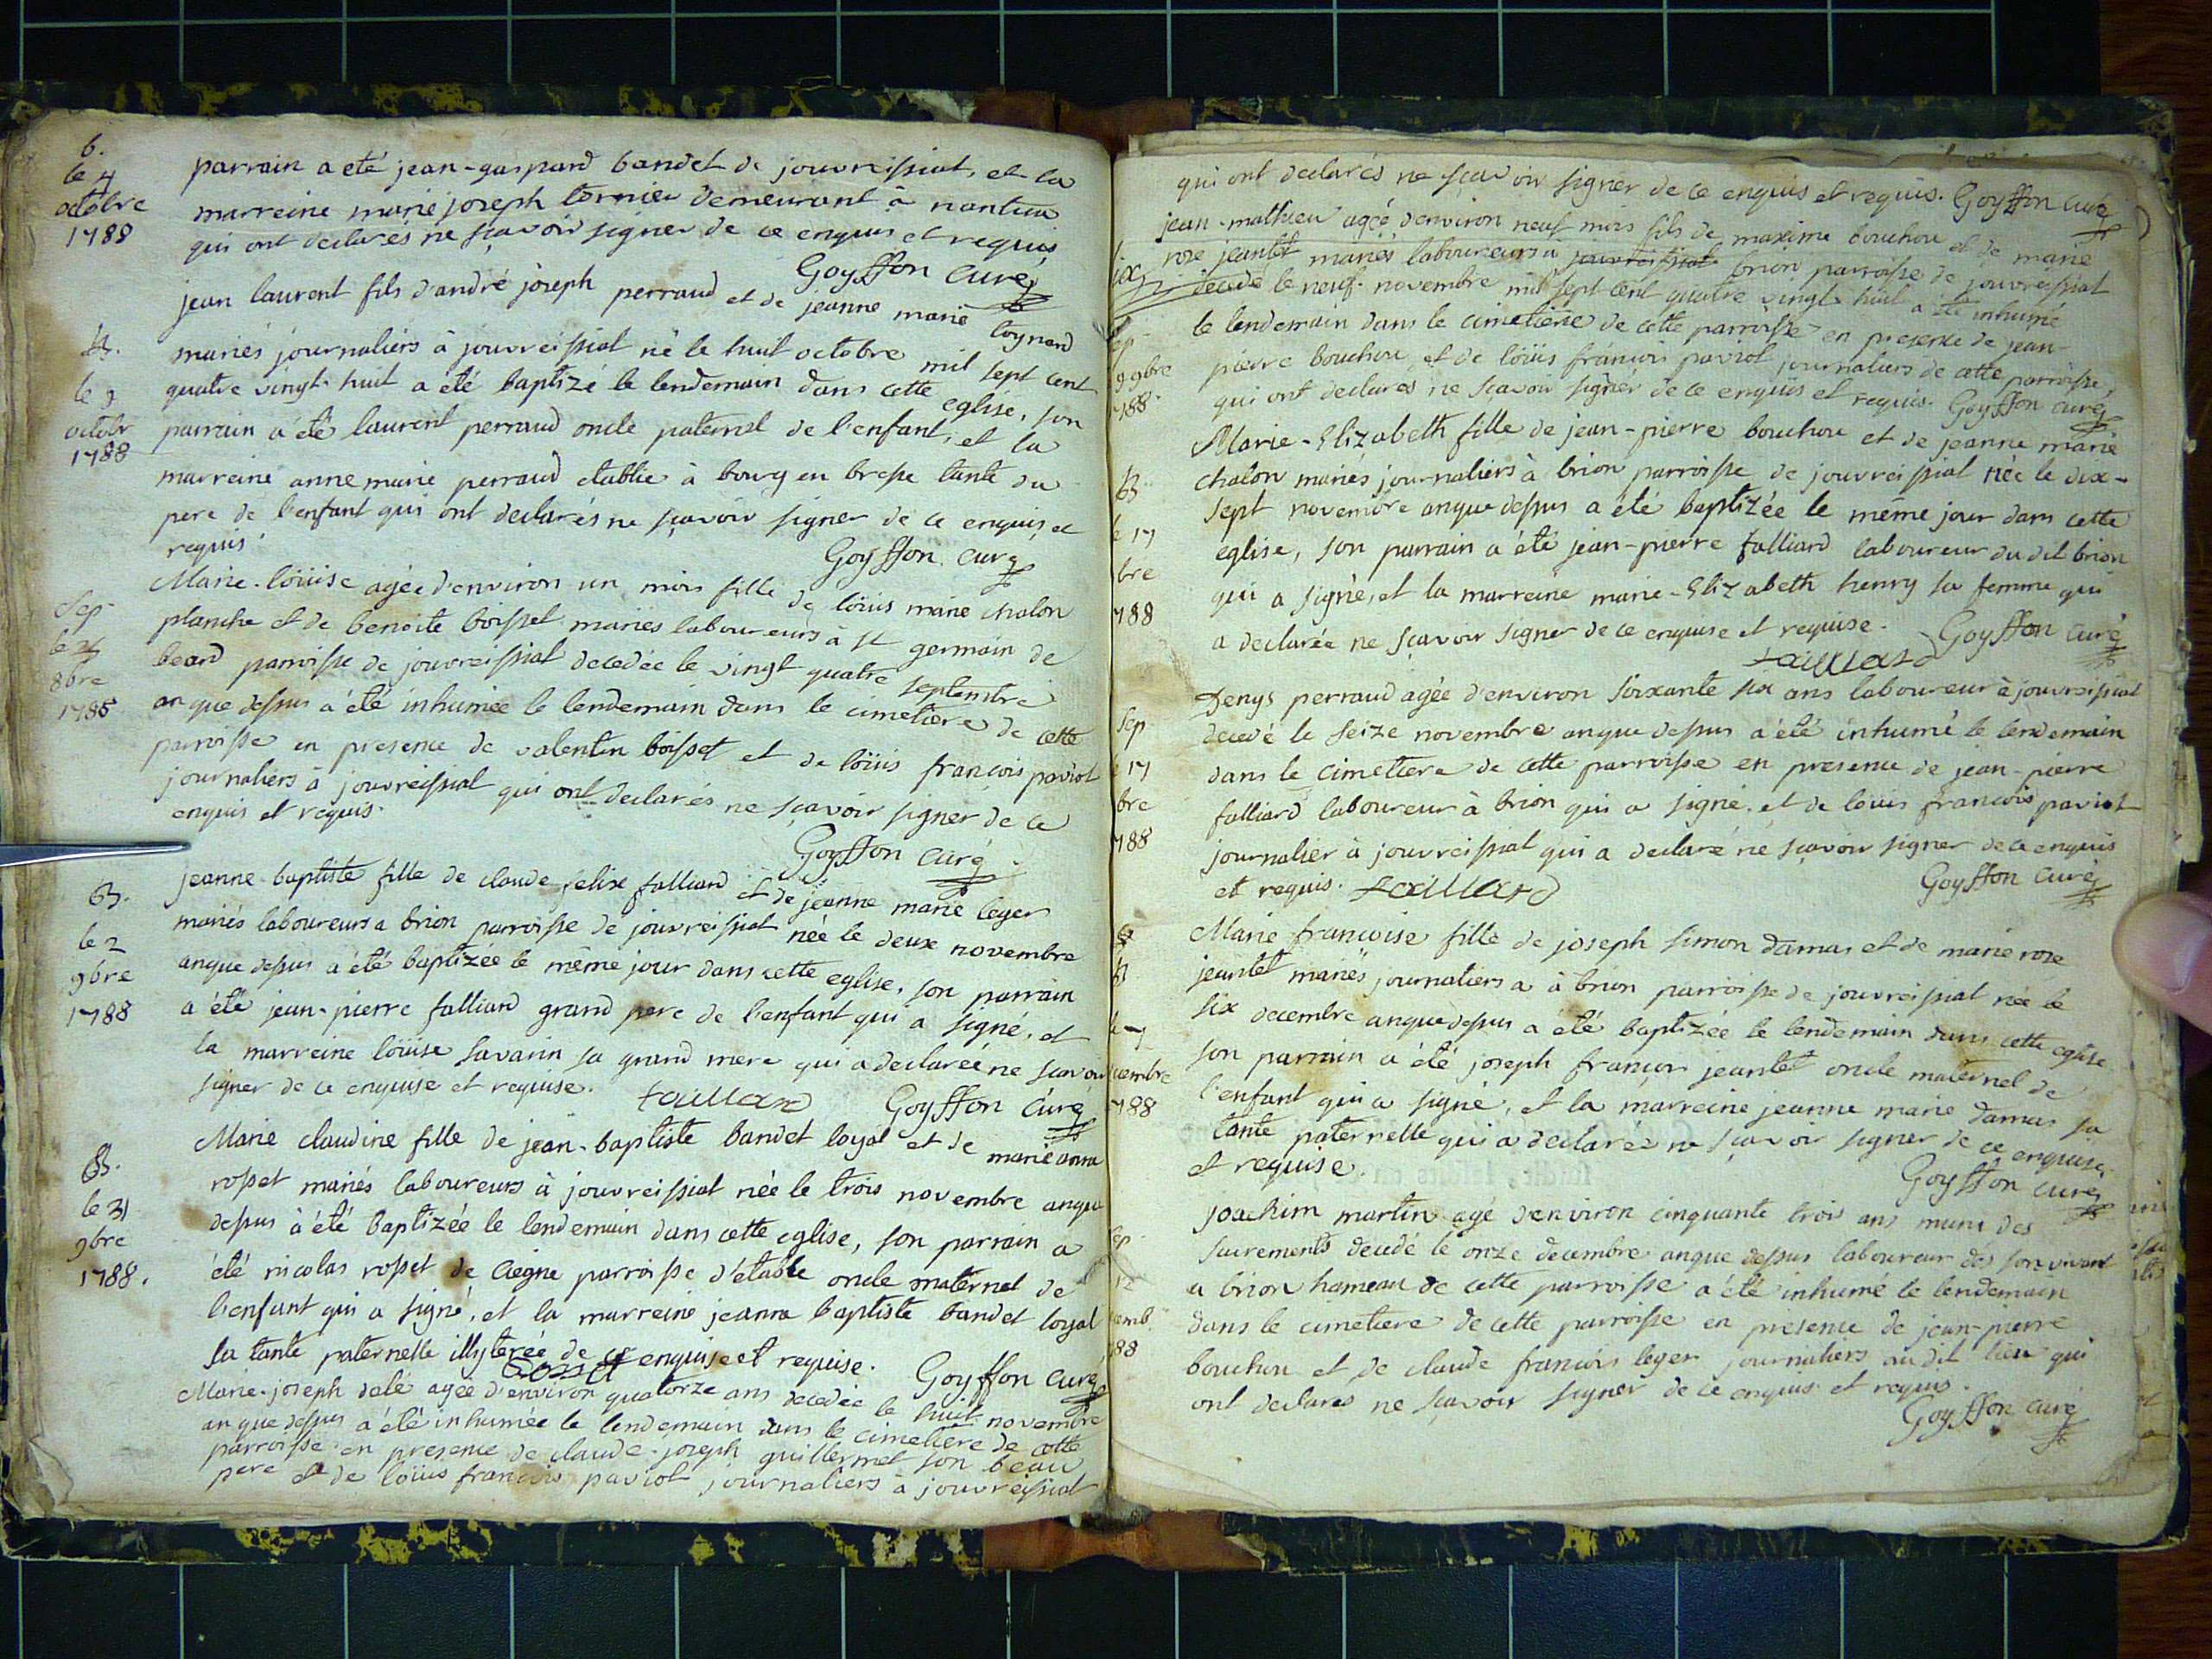 b.
le 4
octobre
1788
parrain a eté jean-gaspard bandet de jouvreissiat, et la
marreine marie joseph tornier demeurant à nantua
qui ont declarés ne sçavoir signer de ce enquis et requis
Goyffon curé
B.
le 9
octobr
1788
jean laurent fils d'andré joseph perraud et de jeanne marie cognard
mariés journaliers à jouvreissiat né le huit octobre mil sept cent
quatre vingt-huit a été baptizé le lendemain dans cette eglise, son
parrain a été laurent perraud oncle paternel de l'enfant, et la
marreine anne marie perraud etablie à bourg en bresse tante du
pere de l'enfant qui ont declarés ne sçavoir signer de ce enquis et
requis
Goyffon curé
Sep
8bre
1788
Marie-loüise agée d'environ un mois fille de loüis marie chalon
planche et de benoite boisset mariés laboureurs à st germain de
beard parroisse de jouvreissiat decedée le vingt quatre septembre
an que dessus a été inhumée le lendemain dans le cimetiere de cette
parroisse en presence de valentin boisset et de loüis françois paviot
journaliers à jouvreissiat qui ont declarés ne sçavoir signer de ce
enquis et requis.
Goyffon curé
B.
le 2
9bre
1788
jeanne-baptiste fille de claude felix falliard et de jeanne marie leger
mariés laboureurs a brion parroisse de jouvreissiat née le deux novembre
anque dessus a été baptizée le même jour dans cette eglise, son parrain
a été jean-pierre falliard grand pere de l'enfant qui a signé, et
la marreine loüise savarin sa grand mere qui a declarée ne scavoir
signer de ce enquise et requise. falliard Goyffon curé
B.
le 3
9bre
1788.
Marie claudine fille de jean-baptiste bandet loyal et de marie anne
rosset mariés laboureurs à jouvreissiat née le trois novembre anque
dessus à été baptizée le lendemain dans cette eglise, son parrain a
été nicolas rosset de Ciegne parroisse d'étable oncle maternel de
l'enfant qui a signé, et la marreine jeanne baptiste bandet loyal
sa tante paternelle illyterée de ce enquise et requise. Goyffon curé
Marie-joseph dalé agée d'environ quatorze ans decedée le huit novembre
an que dessus a été inhumée le lendemain dans le cimetiere de cette
parroisse en presence de claude-joseph guillermet son beau
pere et de loüis francois paviot journaliers à jouvreissiat
qui ont declarés ne sçavoir signer de ce enquis et requis. Goyffon curé
9bre
788
jean-mathieu agée d'environ neuf mois fils de maxime bouchou et de marie
rose jeantet mariés laboureurs à jouvreissiat brion parroisse de jouvreissiat
decedé le neuf novembre mil sept cent quatre vingt huit a été inhumé
le lendemain dans le cimetiere de cette parroisse en presence de jean-
pierre bouchou et de loüis françois paviot journaliers de cette parroisse
qui ont declarés ne scavoir signer de ce enquis et requis. Goyffon curé
B
17
bre
788
Marie-Elizabeth fille de jean-pierre bouchou et de jeanne marie
chalon mariés journaliers à brion parroisse de jouvreissiat née le dix-
sept novembre anque dessus a été baptizée le même jour dans cette
eglise, son parrain a été jean-pierre falliard laboureur du dit brion
qui a signé, et la marreine marie-Elizabeth henry sa femme qui
a declarée ne sçavoir signer de ce enquise et requise. Goyffon curé
falliard
Sep
17
bre
788
Denys perraud agée d'environ soixante six ans laboureur à jouvreissiat
decedé le seize novembre anque dessus a été inhumé le lendemain
dans le cimetiere de cette parroisse en presence de jean-pierre
falliard laboureur à brion qui a signé, et de loüis francois paviot
journalier à jouvreissiat qui a declaré ne sçavoir signer de ce enquis
et requis. falliard Goyffon curé
B
le 7
cembre
788
Marie francoise fille de joseph simon damas et de marie rose
jeantet mariés journaliers a à brion parroisse de jouvreissiat née le
six decembre anque dessus a été baptizée le lendemain dans cette eglise
son parrain a été joseph françois jeantet oncle maternel de
l'enfant qui a signé, et la marreine jeanne marie damas sa
tante paternelle qui a declarée ne sçavoir signer de ce enquise
et requise.
Goyffon curé
ep
12
cemb
188
joachim martin agé d'environ cinquante trois ans muni des
sacrements decedé le onze decembre anque dessus laboureur des son vivant
a brion hameau de cette parroisse a été inhumé le lendemain
dans le cimetiere de cette parroisse en presence de jean-pierre
bouchou et de claude francois leger journaliers au dit lieu qui
ont declarés ne scavoir signer de ce enquis et requis.
Goyffon curé